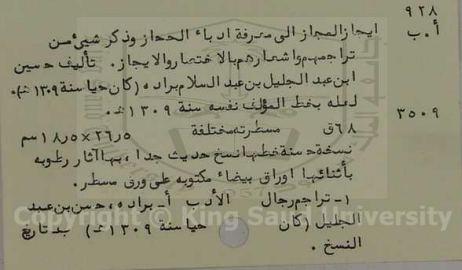 ٩٢٨
أ.ب
ايجاز المجاز الى معرفة ادباء الحجاز وذكر شيئ من
تراجمهم واشعارهم بالاختصار والايجاز. تأليف حسين
ابن عبد الجليل بن عبد السلام براده (كان حيا سنة ١٣٠٩هـ).
لعله بخط المؤلف نفسه سنة ١٣٠٩هـ.
٣٥٠٩
٦٨ق مسطرته مختلفة ٢٦٫٥×١٨٫٥سم
نسخة حسنة خطها نسخ حديث جدا، بها آثار رطوبه
بأثنائها اوراق بيضاء مكتوبه على ورق مسطر.
١- تراجم رجال الأدب أ- براده، حسن بن عبد
الجليل (كان حيا سنة ١٣٠٩هـ) ب- تاريخ
النسخ.
Copyright © King Saud University